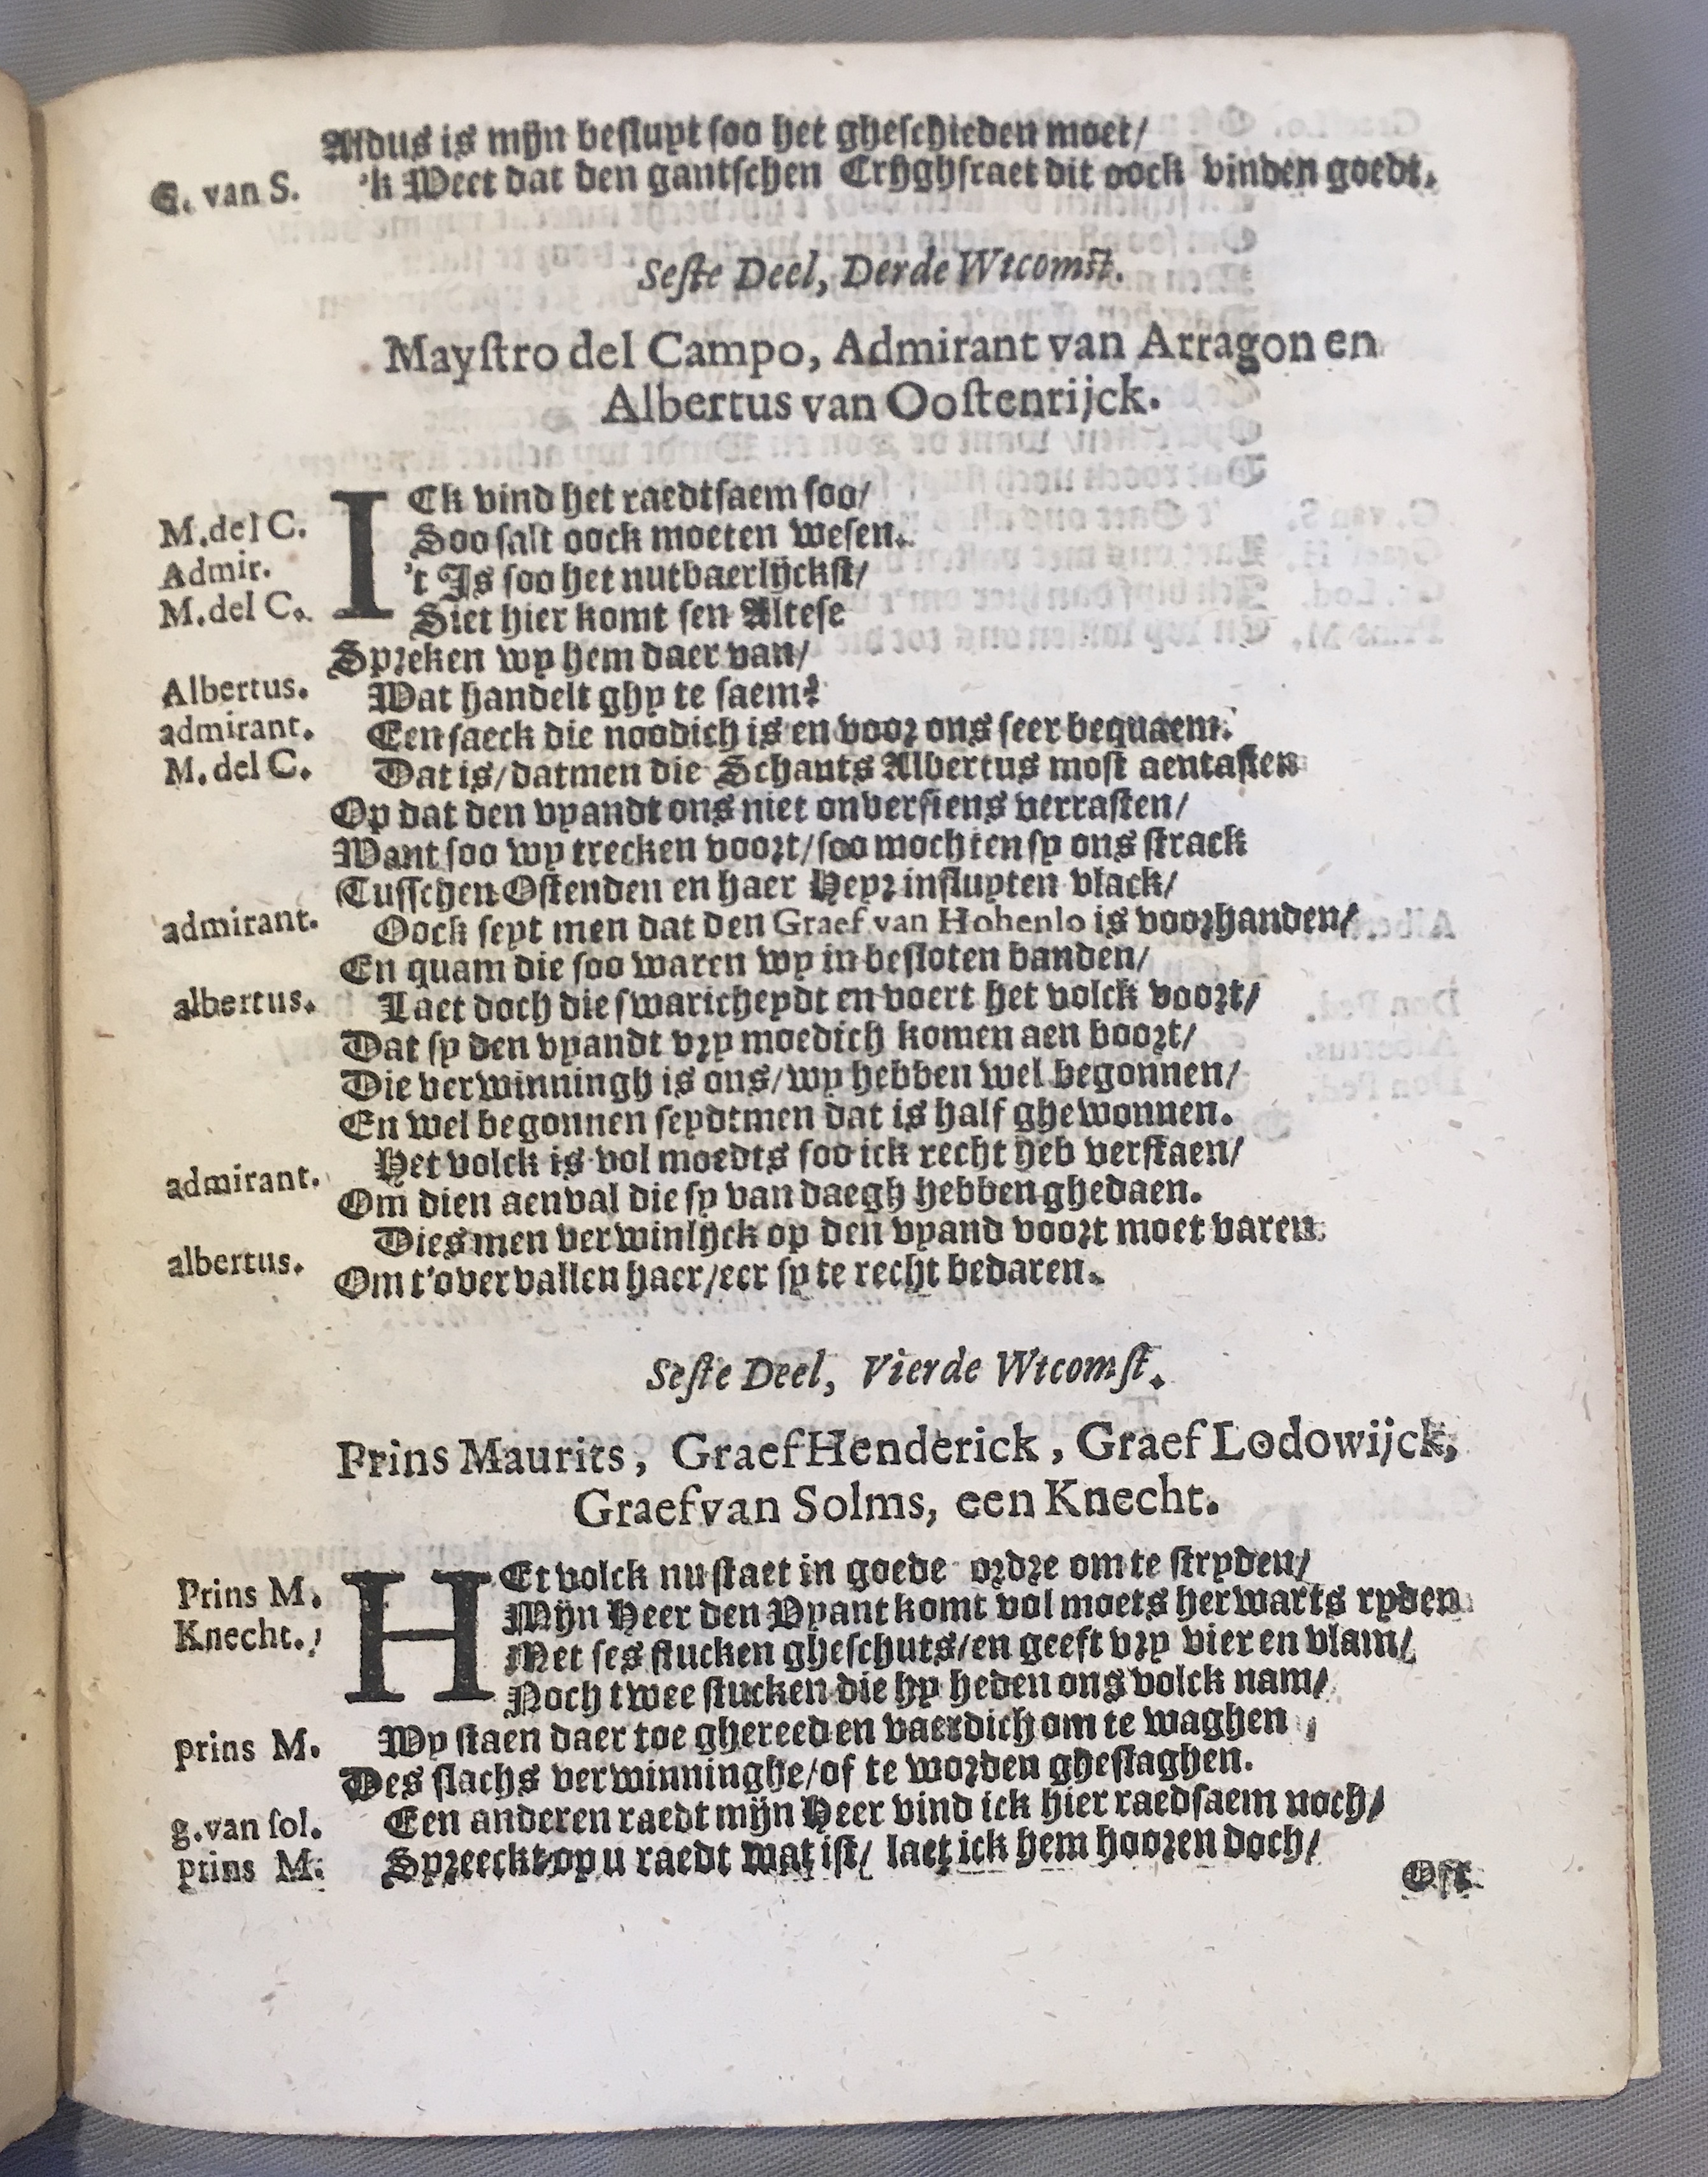 Aldus is mijn besluyt soo het gheschieden moet/
G. van S. 'k Weet dat den gantschen Crijghsraet dit oock vinden goedt.
Seste Deel, Derde Wtcomst.
Maystro del Campo, Admirant van Arragon en
Albertus van Oostenrijck.
M. del C. ICk vind het raedtsaem soo/
Admir. Soo salt oock moeten wesen.
M. del C. 't Is soo het nutbaerlijckst/
Siet hier komt sen Altese
Spreken wy hem daer van/
Albertus. Wat handelt ghy te saem?
admirant. Een saeck die noodich is en voor ons seer bequaem.
M. del C. Dat is/datmen die Schants Albertus most aentasten
Op dat den vyandt ons niet onversiens verrasten/
Want soo wy trecken voort/soo mochten sy ons strack
Tusschen Ostenden en haer Heyr insluyten vlack/
admirant. Oock seyt men dat den Graef van Hohenlo is voorhanden/
En quam die soo waren wy in besloten banden/
albertus. Laet doch die swaricheydt en voert het volck voort/
Dat sy den vyandt vry moedich komen aen boort/
Die verwinningh is ons/wy hebben wel begonnen/
En wel begonnen seydtmen dat is half ghewonnen.
admirant. Het volck is vol moedts soo ick recht heb verstaen/
Om dien aenval die sy van daegh hebben ghedaen.
albertus. Dies men verwinlijck op den vyand voort moet varen
Om t'overvallen haer/eer sy te recht bedaren.
Seste Deel, Vierde Wtcomst.
Prins Maurits, Graef Henderick, Graef Lodowijck,
Graef van Solms, een Knecht.
Prins M. HEt volck nu staet in goede ordre om te stryden/
Knecht. Mijn Heer den Vyant komt vol moets herwarts ryden
Met ses stucken gheschuts/en geeft vry vier en vlam/
Noch twee stucken die hy heden ons volck nam/
prins M. Wy staen daer toe ghereed en vaerdich om te waghen
Des slachs verwinninghe/of te worden gheslaghen.
g. van sol. Een anderen raedt mijn Heer vind ick hier raedsaem noch/
prins M. Spreeckt op u raedt wat ist/ laet ick hem hooren doch/
Ost